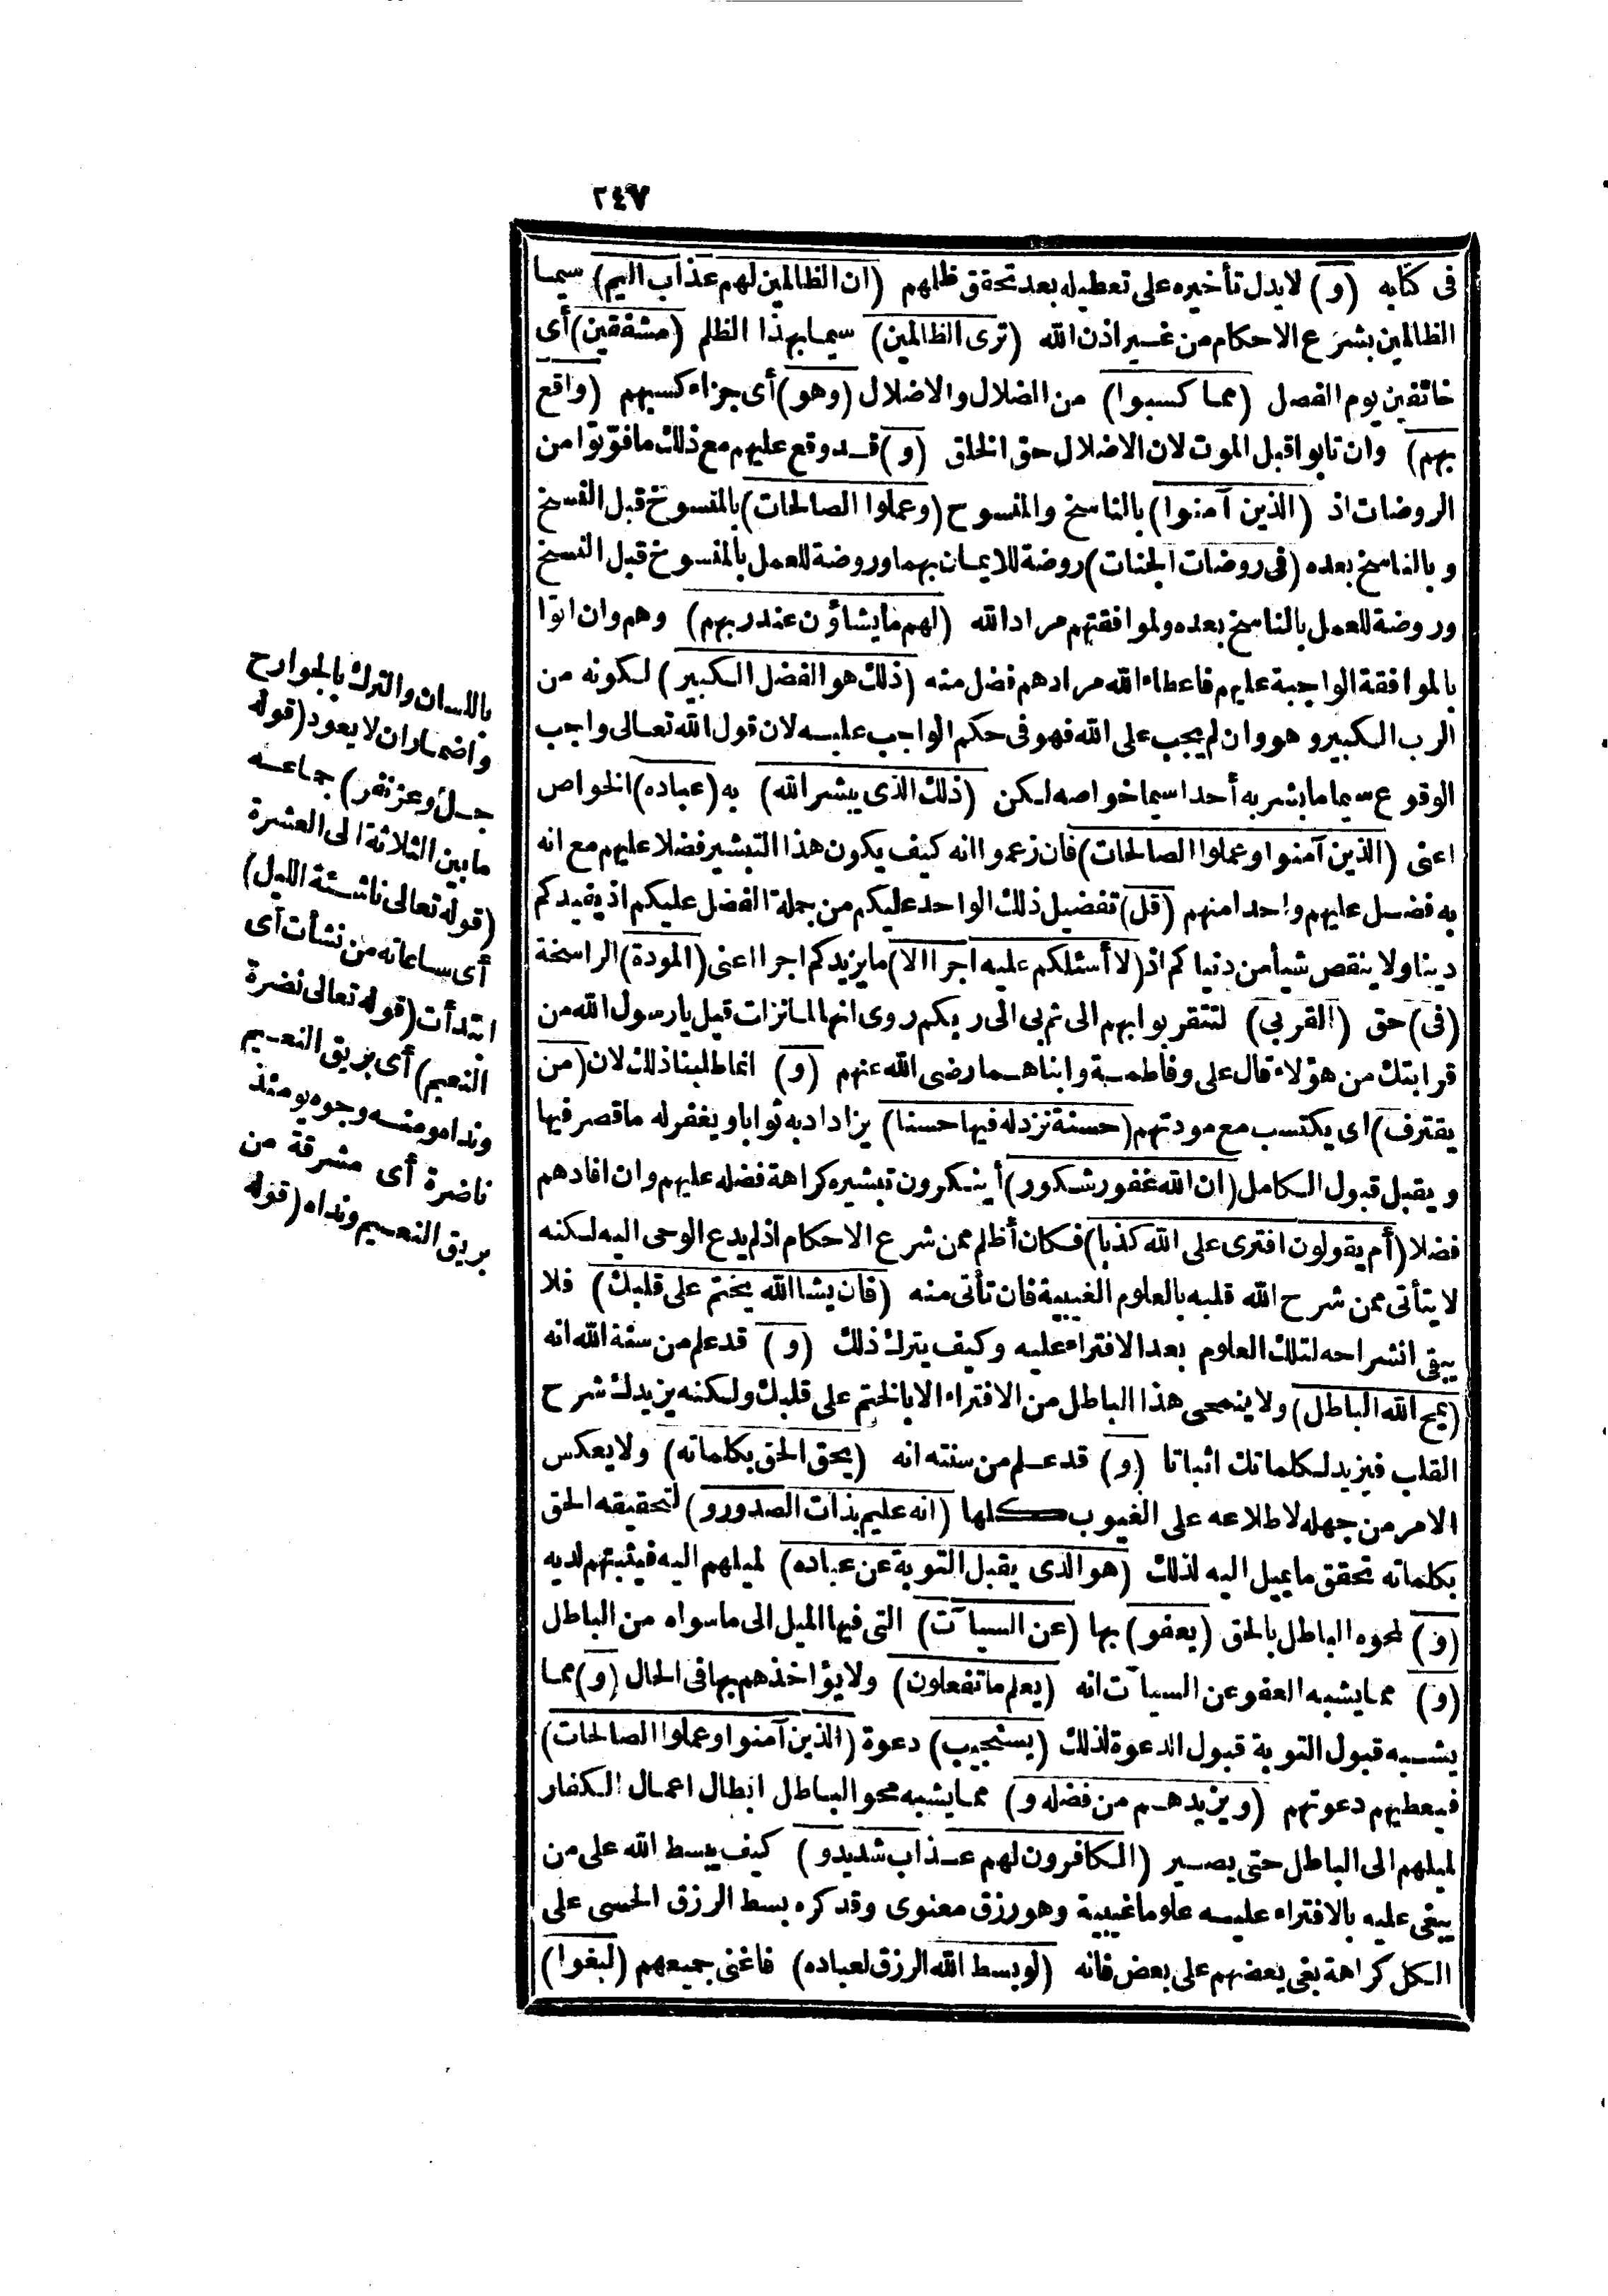 ٢٤٧
فى كتابه (و) لا يدل تأخيره على تعطيله بعد تحقق ظلمهم (ان الظالمين لهم عذاب اليم) سيما
الظالمين بشرع الاحكام من غير اذن الله (ترى الظالمين) سيما بهذا الظلم (مشفقين) أى
خائفين يوم الفصل (مما كسبوا) من الضلال والاضلال (وهو) أى جزاء كسبهم (واقع
بهم) وان تابوا قبل الموت لان الاضلال حق الخلق (و) قد وقع عليهم مع ذلك ما فوّتوا من
الروضات اذ (الذين آمنوا) بالناسخ والمنسوح (وعملوا الصالحات) بالمنسوخ قبل النسخ
وبالناسخ بعده (فى روضات الجنات) روضة للايمان بهما وروضة للعمل بالمنسوخ قبل النسخ
وروضة للعمل بالناسخ بعده ولموافقتهم مراد الله (لهم ما يشاؤن عند ربهم) وهم وان اتوا
بالموافقة الواجبة عليهم فاعطاء الله مرادهم فضل منه (ذلك هو الفضل الكبير) لكونه من
الرب الكبير وهو وان لم يجب على الله فهو فى حكم الواجب عليه لان قول الله تعالى واجب
الوقوع سيما ما بشر به أحدا سيما خواصه لكن (ذلك الذى يبشر الله) به (عباده) الخواص
اعنى (الذين آمنوا وعملوا الصالحات) فان زعموا انه كيف يكون هذا التبشير فضلا عليهم مع انه
به فضل عليهم واحدا منهم (قل) تفضيل ذلك الواحد عليكم من جملة الفضل عليكم اذ يفيدكم
دينا ولا ينقص شيأ من دنياكم اذ (لا أسئلكم عليه اجرا الا) ما يزيدكم اجرا اعنى (المودة) الراسخة
(فى) حق (القربى) لتتقربوا بهم الى ثم بى الى ربكم روى انها لما نزلت قيل يا رسول الله من
قرابتك من هؤلاء قال على وفاطمة وابناهما رضى الله عنهم (و) انما طلبنا ذلك لان (من
يقترف) اى يكتسب مع مودتهم (حسنة نزد له فيها حسنا) يزاد ا به ثوابا ويغفر له ما قصر فيها
ويقبل قبول الكامل (ان الله غفور شكور) أينكرون تبشيره كراهة فضله عليهم وان افادهم
فضلا (أم يقولون افترى على الله كذبا) فكان أظلم ممن شرع الاحكام اذ لم يدع الوحى اليه لكنه
لا يتأتى ممن شرح الله قلبه بالعلوم الغيبية فان تأتى منه (فان يشا الله يختم على قلبك) فلا
يبقى انشراحه لتلك العلوم بعد الافتراء عليه وكيف يترك ذلك (و) قد علم من سنة الله انه
(يمح الله الباطل) ولا ينمحى هذا الباطل من الافتراء الا بالختم على قلبك ولكنه يزيدك شرح
القلب فيزيد لكلماتك اثباتا (و) قد علم من سنته انه (يحق الحق بكلماته) ولا يعكس
الامر من جهله لاطلاعه على الغيوب كلها (انه عليم بذات الصدور و) لتحقيقه الحق
بكلماته تحقق ما يميل اليه لذلك (هو الذى يقبل التوبة عن عباده) لميلهم اليه فيثبتهم لديه
(و) لمحوه الباطل بالحق (يعفو) بها (عن السيآت) التى فيها الميل الى ما سواه من الباطل
(و) مما يشبه العفو عن السيآت انه (يعلم ما تفعلون) ولا يؤاخذهم بها فى الحال (و) مما
يشبه قبول التوبة قبول الدعوة لذلك (يستجيب) دعوة (الذين آمنوا وعملوا الصالحات)
فيعطيهم دعوتهم (ويزيدهم من فضله و) مما يشبه محو الباطل ابطال اعمال الكفار
لميلهم الى الباطل حتى يصير (الكافرون لهم عذاب شديد و) كيف يبسط الله على من
يبغى عليه بالافتراء عليه علوما غيبية وهو رزق معنوى وقد كره بسط الرزق الحسى على
الكل كراهة بغى بعضهم على بعض فانه (لو بسط الله الرزق لعباده) فاغنى جميعهم (لبغوا)
باللسان والترك بالجوارح
واضمار ان لا يعود (قوله
جل وعز نفر) جماعة
ما بين الثلاثة الى العشرة
(قوله تعالى ناشئة الليل)
أى ساعاته من نشأت أى
ابتدأت (قوله تعالى نضرة
النعيم) أى بريق النعيم
ونداه ومنه وجوه يومئذ
ناضرة أى مشرقة من
بريق النعيم ونداه (قوله